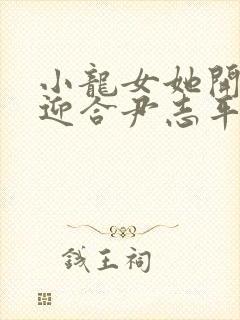 小龍女她開
迎合尹志平
錢王祠